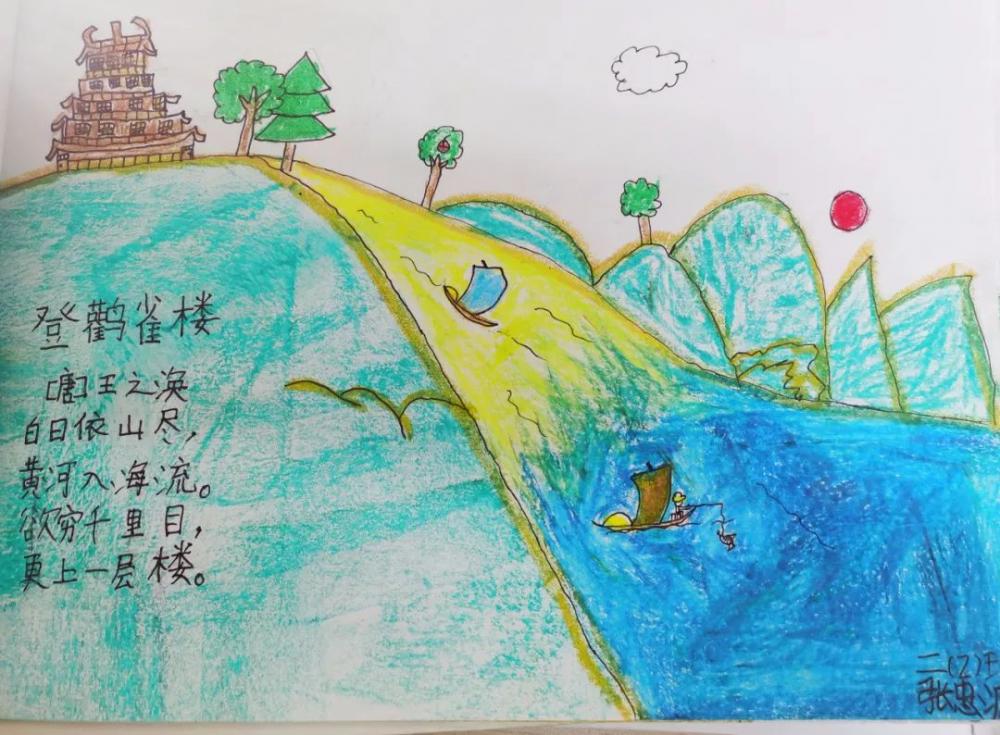 登鹳雀楼
[唐]王之涣
白日依山尽，
黄河入海流。
欲穷千里目，
更上一层楼。
二(2)
张忠